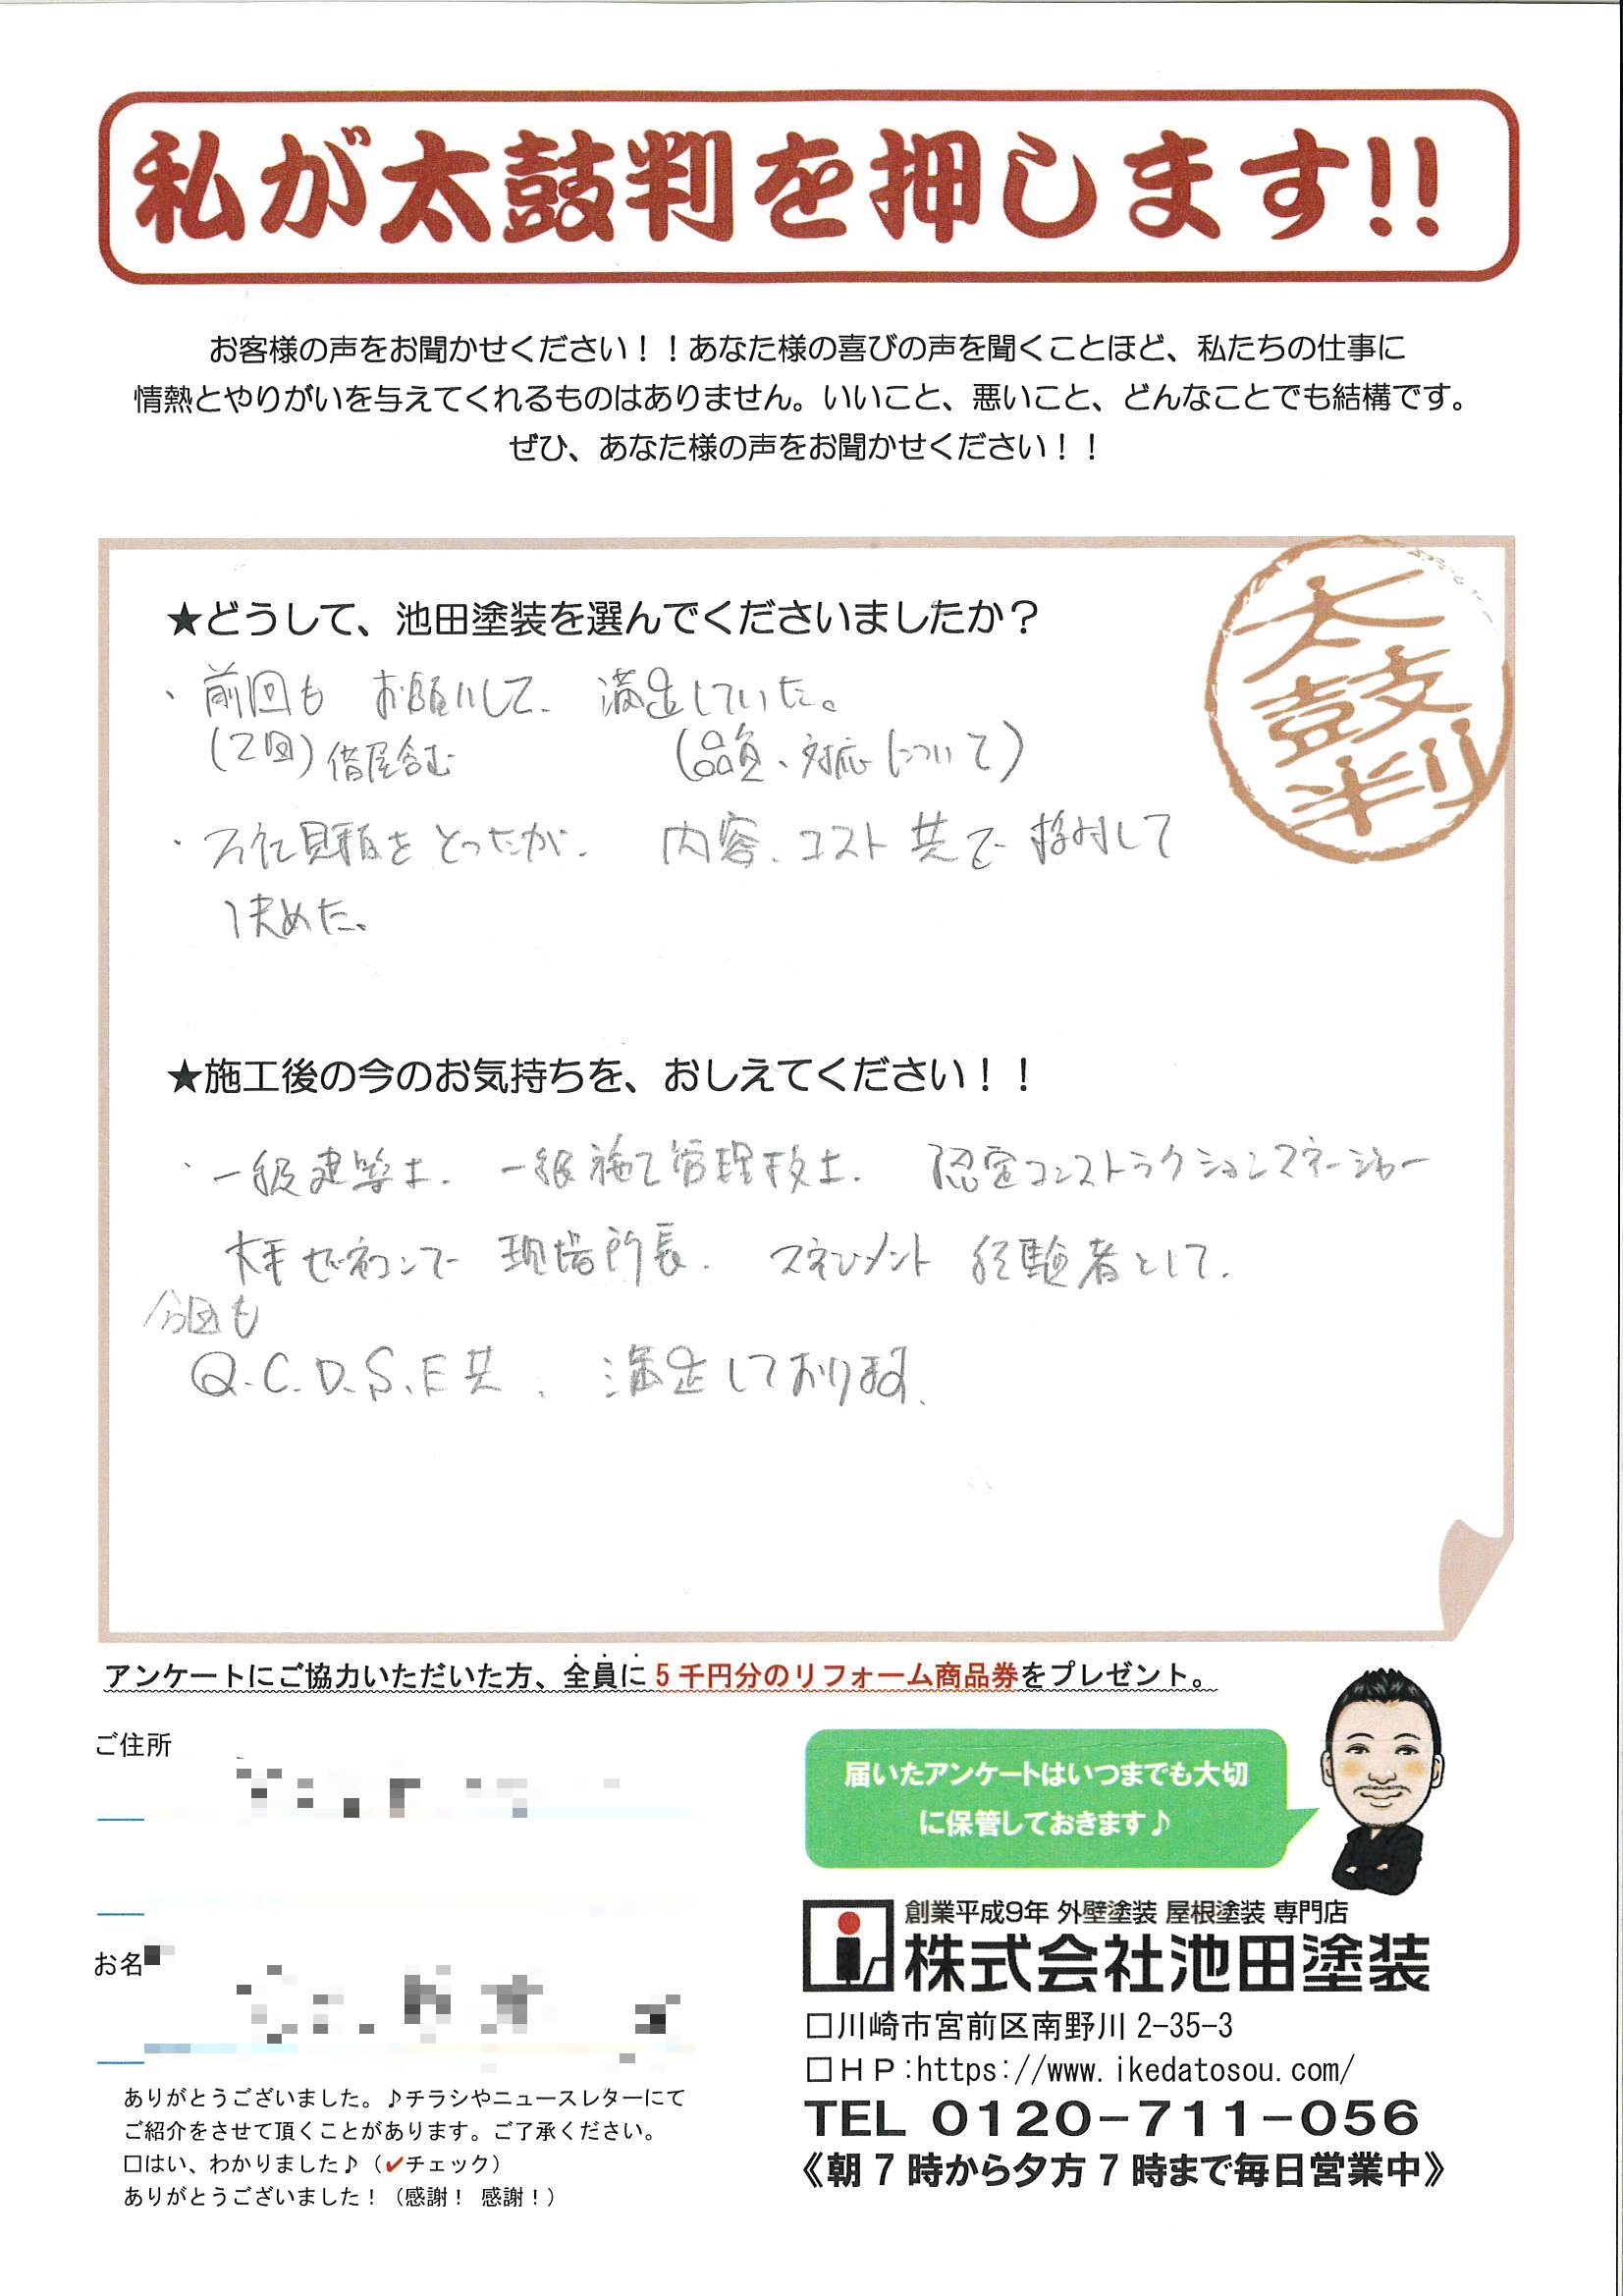 私が太鼓判を押します!!
お客様の声をお聞かせください！！あなた様の喜びの声を聞くことほど、私たちの仕事に
情熱とやりがいを与えてくれるものはありません。いいこと、悪いこと、どんなことでも結構です。
ぜひ、あなた様の声をお聞かせください！！
太鼓判
★どうして、池田塗装を選んでくださいましたか？
・前回も お願いして、満足していた。
(2回)借屋含む (品質、対応について)
・ 見積をとったが、内容、コスト共で検討して
決めた。
★施工後の今のお気持ちを、おしえてください！！
・一級建築士、一級施工管理技士、認定コンストラクションマネージャー
大手ゼネコンで現場所長、マネジメント経験者として、
今回も
Q.C.D.S.E共、満足しております。
アンケートにご協力いただいた方、全員に5千円分のリフォーム商品券をプレゼント。
ご住所
届いたアンケートはいつまでも大切
に保管しておきます♪
お名
創業平成9年 外壁塗装 屋根塗装 専門店
株式会社池田塗装
□川崎市宮前区南野川2-35-3
□ＨＰ:https://www.ikedatosou.com/
TEL 0120-711-056
《朝7時から夕方7時まで毎日営業中》
ありがとうございました。♪チラシやニュースレターにて
ご紹介をさせて頂くことがあります。ご了承ください。
□はい、わかりました♪（✔チェック）
ありがとうございました！（感謝！ 感謝！）